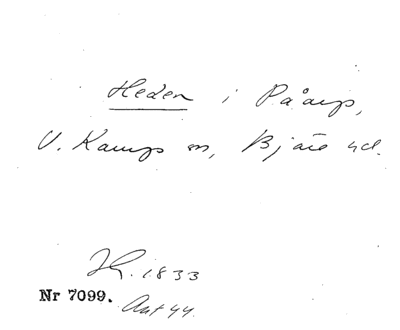 Heden i Påarp,
V. Karups sn, Bjäre hd.
1833
Nr 7099. Ant 44.